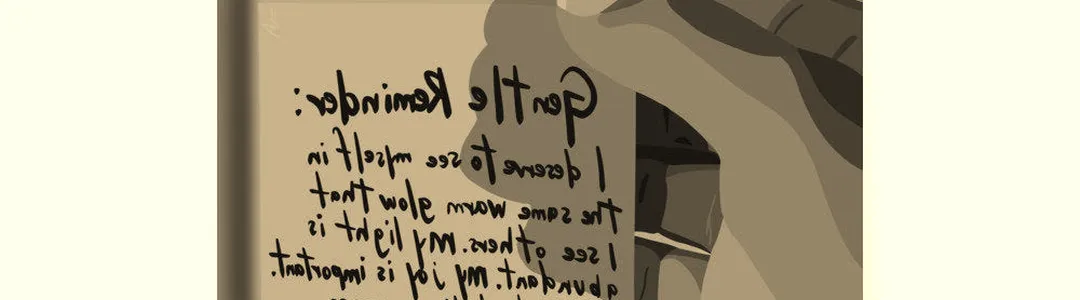 Gentle Reminder:
I deserve to see myself in
the same warm glow that
I see others. My light is
abundant. My joy is important.